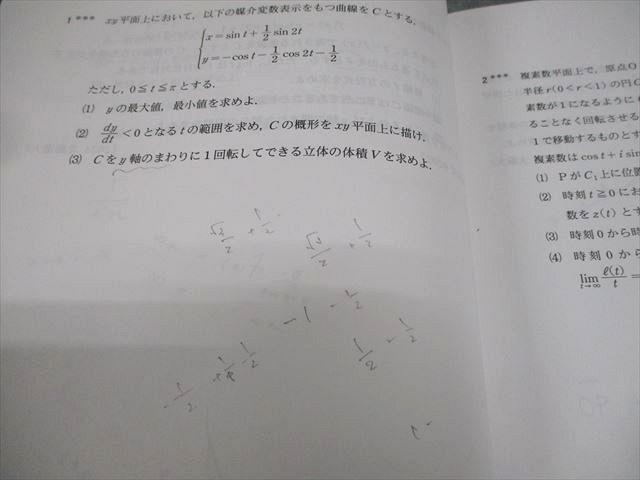 1*** xy平面上において，以下の媒介変数表示をもつ曲線をCとする．
x=sin t+1/2 sin 2t
y=-cos t-1/2 cos 2t-1/2
ただし，0≦t≦πとする．
(1) yの最大値，最小値を求めよ．
(2) dy/dt<0となるtの範囲を求め，Cの概形をxy平面上に描け．
(3) Cをy軸のまわりに1回転してできる立体の体積Vを求めよ．
√3/2 + 1/2
√3/2 + 1/2
-1 - 1/2
1/2 - 1/2
2*** 複素数平面上で，原点O
半径r(0<r<1)の円C
素数が1になるように
ることなく回転させる
1で移動するものとす
複素数はcos t+i sin
(1) PがC₁上に位置
(2) 時刻t≧0にお
数をz(t)とす
(3) 時刻0から時
(4) 時刻0から
lim t→∞ ℓ(t)/t =